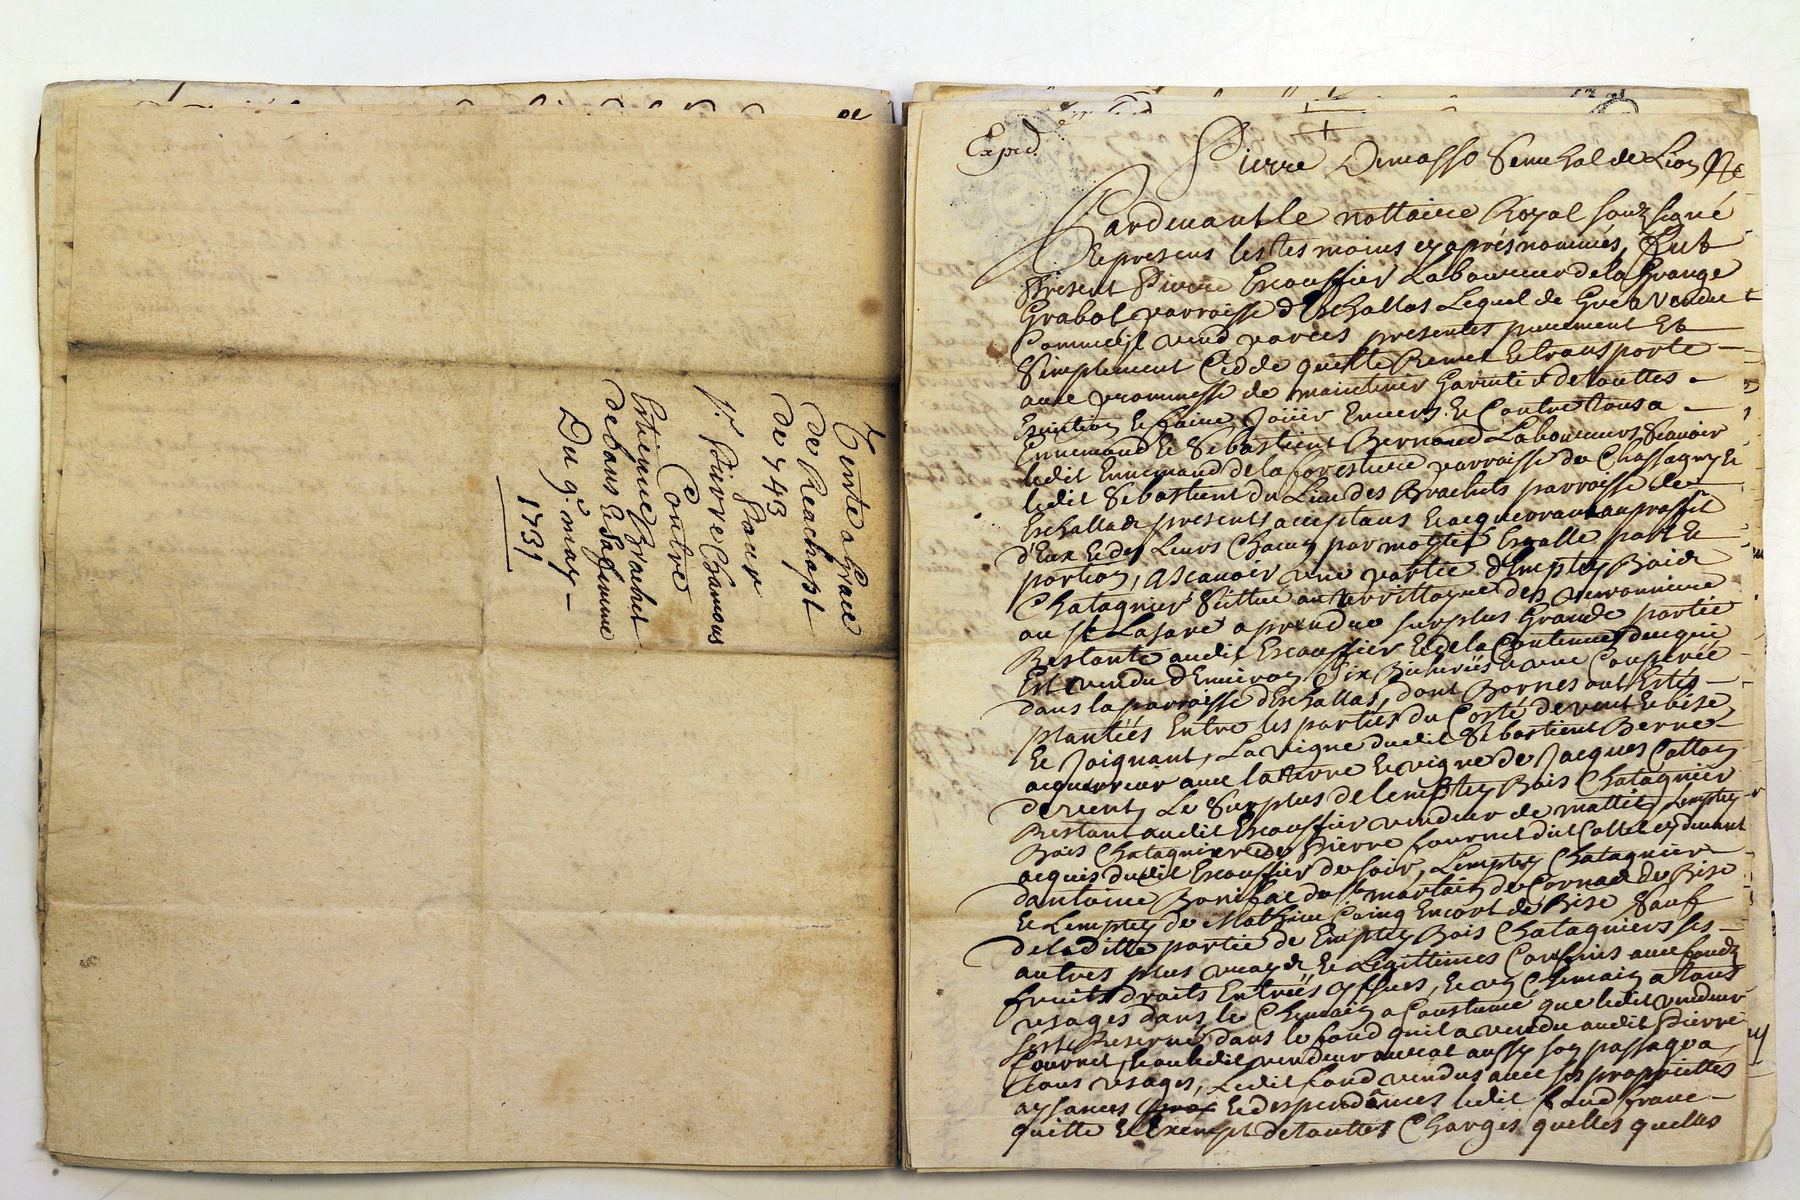 Vente a Grace
de Reachapt
de 443
pour
Sr. Pierre Chamous
Contre
Estienne Brachet
debans & safemme
Du 9e. may
1731
Exped.
Pierre Dumasso Senechal de Lion
Pardevant le nottaire Royal souz signé
& presens les tesmoins cy après nommés, fut
Present Pierre Escoffier Laboureur de la Grange
Grabot parroisse d'Eschallas Lequel de Gré a vendu
Comme il vend par ces presentes purement Et
Simplement Cedde quitte Remet & transporte
avec prommesse de maintenir Garentir de touttes
Eviction & faire Joüir Envers & Contre tous a
Ennemond & Sebastient Bernard Laboureurs Scavoir
ledit Ennemond de la forestiere parroisse de Chassagny &
ledit Sebastient du Lieu des Brachets parroisse de
Eschallas presents acceptans & acquerrant au proffit
d'Eux & des Leurs Chacun par moytié Esgalle part &
portion, ascavoir une partie d'Emptey Bois
Chatagnier Scittué au territtoire des
au St Lasare a prendre surplus Grande partie
Restante audit Escoffier & de la Contenue de ce qui
Est vendu d'Environ Six Bicherées & une Couperée
dans la parroisse d'Eschallas, dont Bornes ont Estés
plantées Entre les parties du Costé de vent & bise
& Joignant, La vigne dudit Sebastient Bernard
acquerreur avec la terre & vigne de Jacques
de vent, Le Surplus de lemptey Bois Chatagnier
Restant audit Escoffier vendeur de mattin, lemptey
Bois Chatagnier de Pierre fournet dit Cottel cy devant
acquis dudit Escoffier de soir, Lemptey Chatagnier
dantoine Bonifac de St martin de Cornas de Bise
& Lemptey de Mathieu Coing Encort de Bise Sauf
de laditte partie de Emptey Bois Chatagniers ses
autres plus vrays & Legittimes Confins avec fonds
fruits droits Entrées yssues, & un Chemain a tous
usages dans le Chemain a Coustumé que ledit vendeur
sest Reservé dans le fond quil a vendu audit Pierre
fournet, & ou ledit vendeur aurat aussy son passage a
tous usages, Ledit fond vendus avec ses propriettes
aysances & despendances ledit fond franc
quitte & Exempt de touttes Charges quelles quelles